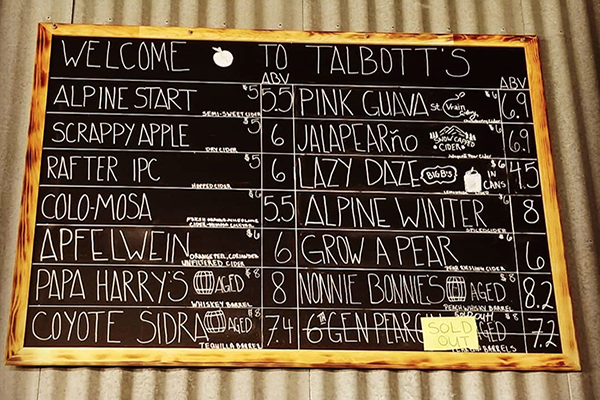 WELCOME TO TALBOTT'S
ABV
ALPINE START $5 5.5
SEMI-SWEET CIDER
SCRAPPY APPLE $5 6
DRY CIDER
RAFTER IPC $5 6
HOPPED CIDER
COLO-MOSA $6 5.5
APFELWEIN $6 6
ORANGE PEEL, CORIANDER
UNFILTERED CIDER
PAPA HARRY'S AGED $8 8
WHISKEY BARREL
COYOTE SIDRA AGED $8 7.4
TEQUILLA BARREL
ABV
PINK GUAVA St. Vrain Cidery $6 6.9
JALAPEARñO SNOW CAPPED CIDER $6 6.9
LAZY DAZE BIG B'S $6 IN CANS 4.5
ALPINE WINTER $6 8
SPICED CIDER
GROW A PEAR $6 6
PEAR CIDER
NONNIE BONNIE'S AGED $8 8.2
PEACH WHISKY BARREL
SOLD OUT!
6TH GEN PEARCH AGED $8 7.2
SOLD OUT
BARRELS